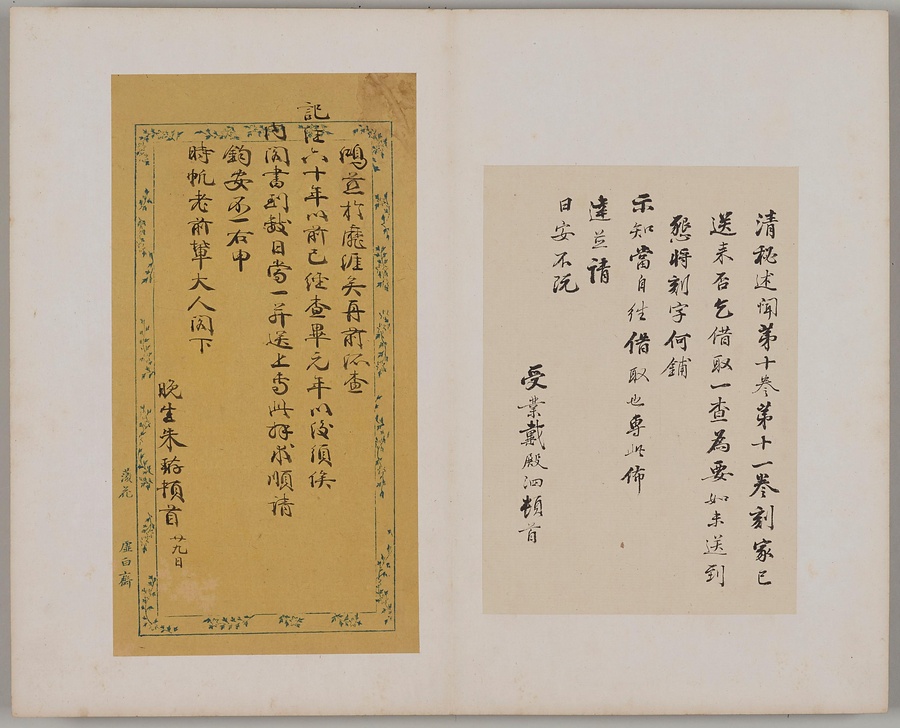 清秘述聞第十卷第十一卷刻家已
送來否乞借取一查為要如未送到
懇將刻字何鋪
示知當自往借取也專此佈
達並請
日安不阮
受業戴殿泗頓首
鴻並於廡
再前所查
記注六十年以前已經查畢元年以後須俟
內閣書到數日當一并送上專此拜求順請
鈞安不一右申
時帆老前輩大人閣下
晚生朱頓首
廿九日
落花
虛白齋